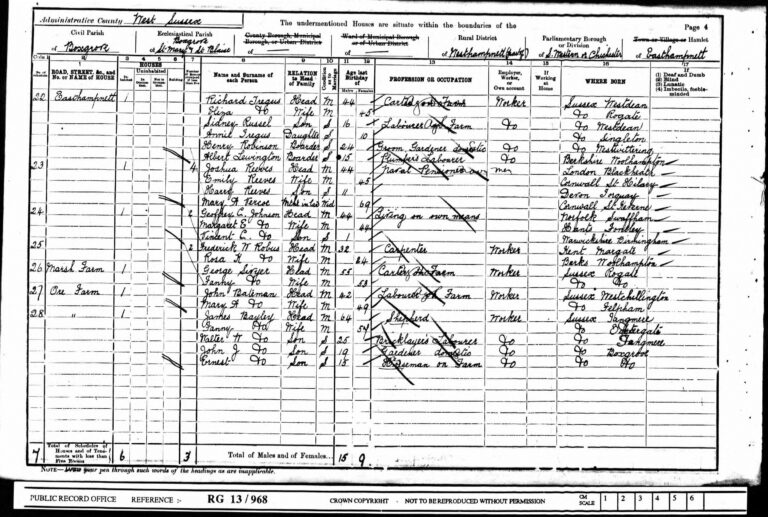 Administrative County West Sussex
The undermentioned Houses are situate within the boundaries of the
Page 4
Civil Parish
of Boxgrove
Ecclesiastical Parish
Boxgrove
of St Mary & St Blaise
County Borough, Municipal Borough, or Urban District
Ward of Municipal Borough or of Urban District
Rural District
of Westhampnett
Parliamentary Borough or Division
of S Western or Chichester
Town or Village or Hamlet
of Easthampnett
1 2 3 4 5 6 7 8 9 10 11 12 13 14 15 16 17
ROAD, STREET, &c., and No. or NAME of HOUSE
HOUSES
Inhabited
Uninhabited
Building
Name and Surname of each Person
RELATION to Head of Family
Age last Birthday of
Males Females
PROFESSION OR OCCUPATION
Employer, Worker, or Own account
If Working at Home
WHERE BORN
(1) Deaf and Dumb
(2) Blind
(3) Lunatic
(4) Imbecile, feeble-minded
22 Easthampnett 1 Richard Tregus Head M 44 Carter on Farm Worker Sussex Westdean
Eliza Do Wife M 45 Do Rogate
Sidney Russel Son S 16 Labourer Farm Do Do Westdean
Annie Tregus Daughter S 10 Do Singleton
Henry Robinson Boarder S 24 Groom Gardener domestic Do Do Westwittering
Albert Lewington Boarder S 15 Plumber's Labourer Do Berkshire Woolhampton
23 4 Joshua Reeves Head M 44 Naval Pensioner London Blackheath
Emily Reeves Wife M 45 Cornwall St Hilary
Harry Reeves Son S 11 Devon Torquay
Mary A Wid 69 Cornwall
24 1 2 Geoffrey C. Johnson Head M 44 Living on own means Norfolk Swaffham
Margaret E Do Wife M 44 Hants
Vincent C. Do Son S 1 Warwickshire Birmingham
25 1 2 Frederick W Robus Head M 32 Carpenter Worker Kent Margate
Rosa K Do Wife M 24 Berks Woolhampton
26 Marsh Farm 1 George Head M 55 Carter on Farm Worker Sussex Rogate
Fanny Do Wife M 53 Do Do
27 Ore Farm 1 John Bateman Head M 42 Labourer on Farm Worker Sussex Westchillington
Mary A Do Wife M 49 Do Felpham
28 " 1 James Bayley Head M 64 Shepherd Worker Sussex Tangmere
Fanny Do Wife M 54 Do
Walter W Do Son S 25 Bricklayer's Labourer Do Do Tangmere
John J Do Son S 19 Gardener domestic Do Do Boxgrove
Ernest Do Son S 15 Horseman on Farm Do Do Do
7 Total of Schedules of Houses and of Tenements with less than Five Rooms 6 3 Total of Males and of Females... 15 9
NOTE—Draw your pen through such words of the headings as are inapplicable.
PUBLIC RECORD OFFICE REFERENCE :- RG 13/968 CROWN COPYRIGHT - NOT TO BE REPRODUCED WITHOUT PERMISSION CM SCALE 1 2 3 4 5 6